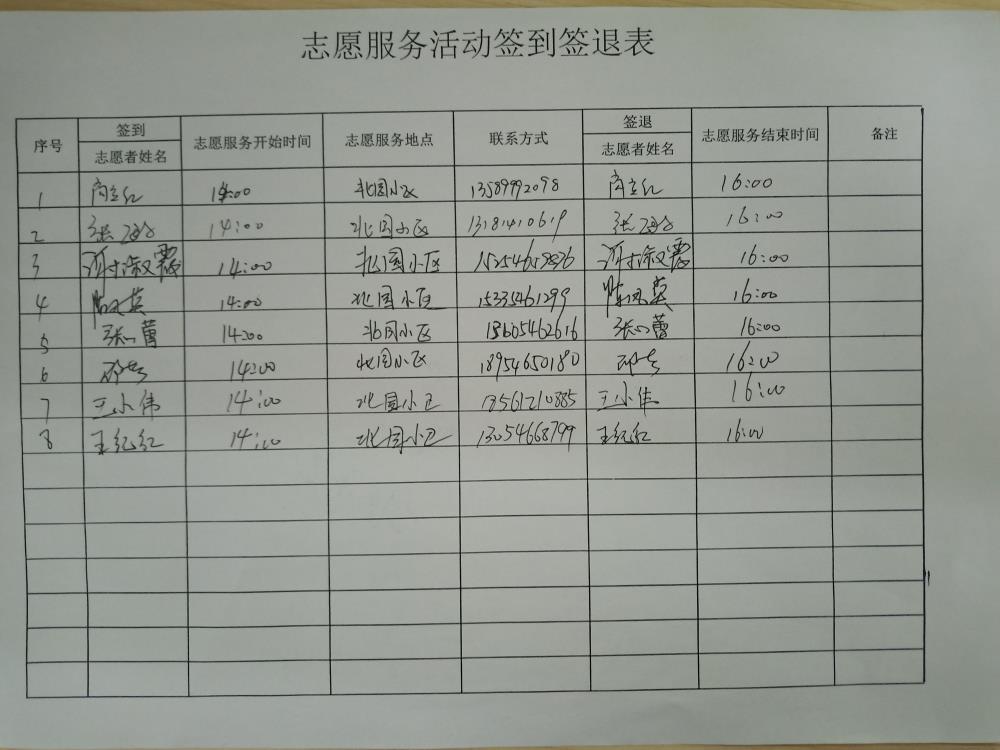 志愿服务活动签到签退表
序号 签到 志愿者姓名 志愿服务开始时间 志愿服务地点 联系方式 签退 志愿者姓名 志愿服务结束时间 备注
1 商立红 14:00 北园小区 13589992098 商立红 16:00
2 张 14:00 北园小区 13181410619 张 16:00
3 14:00 北园小区 16:00
4 陈凤英 14:00 北园小区 15335461299 陈凤英 16:00
5 张心蕾 14:00 北园小区 13605462616 张心蕾 16:00
6 14:00 北园小区 18954650180 16:00
7 王小伟 14:00 北园小区 18561210885 王小伟 16:00
8 王纪红 14:00 北园小区 13054668799 王纪红 16:00